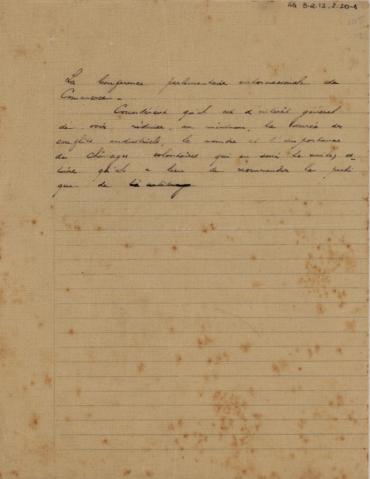 La Conference parlementaire internationale de
Commerce.
Considérant qu'il est d'intérêt général
de voir réduire, au minimum, la durée des
conflits industriels, le nombre et l'importance
des chômages volontaires qui en sont le
qu'il a lieu de recommander la prati
que de